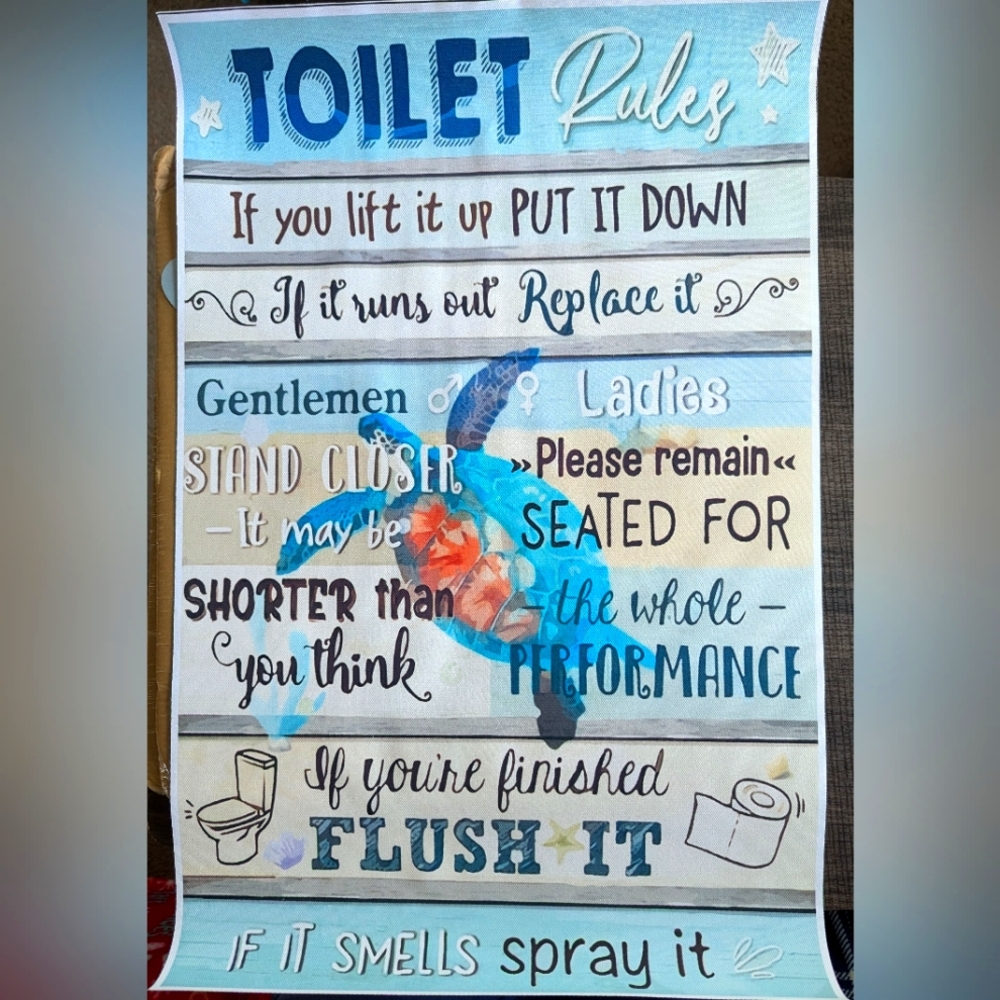 TOILET Rules
If you lift it up PUT IT DOWN
If it runs out Replace it
Gentlemen ♂
STAND CLOSER
–It may be
SHORTER than
you think
♀ Ladies
»Please remain«
SEATED FOR
– the whole –
PERFORMANCE
If you're finished
FLUSH IT
IF IT SMELLS spray it